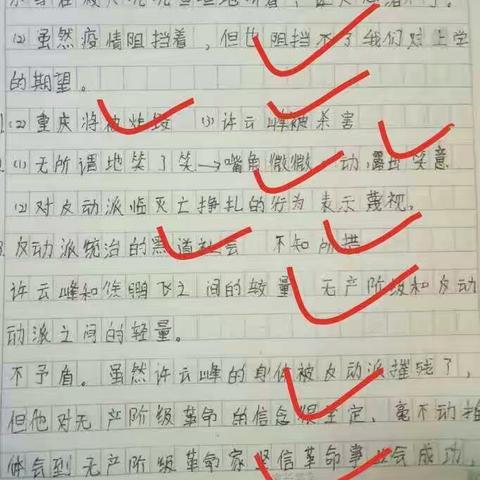 ⑵虽然疫情阻挡着,但也阻挡不了我们对上学
的期望。
⑵重庆将被炸毁 ⑶许云峰被杀害
⑴无所谓地笑了笑→嘴角微微 动,露出笑意
⑵对反动派临灭亡挣扎的行为表示蔑视。
反动派统治的黑道社会 不知所措
许云峰和徐鹏飞之间的较量 无产阶级和反动
动派之间的轻量。
不予盾。虽然许云峰的身体被反动派摧残了,
但他对无产阶级革命的信念很坚定,毫不动摇
体会到无产阶级革命家坚信革命事业会成功,